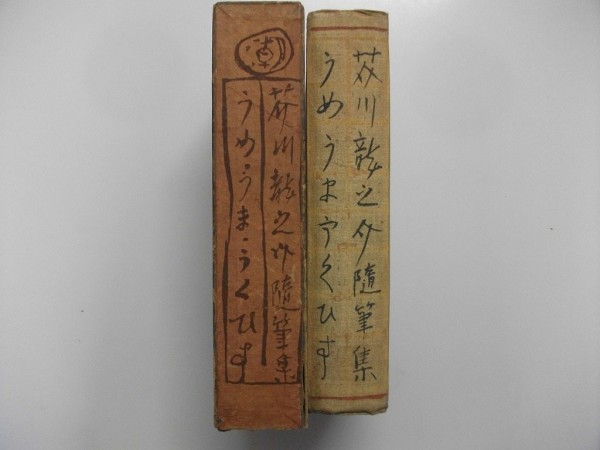 芥川龍之介随筆集
うめ・うま・うぐひす
芥川龍之介随筆集
うめうまうぐひす